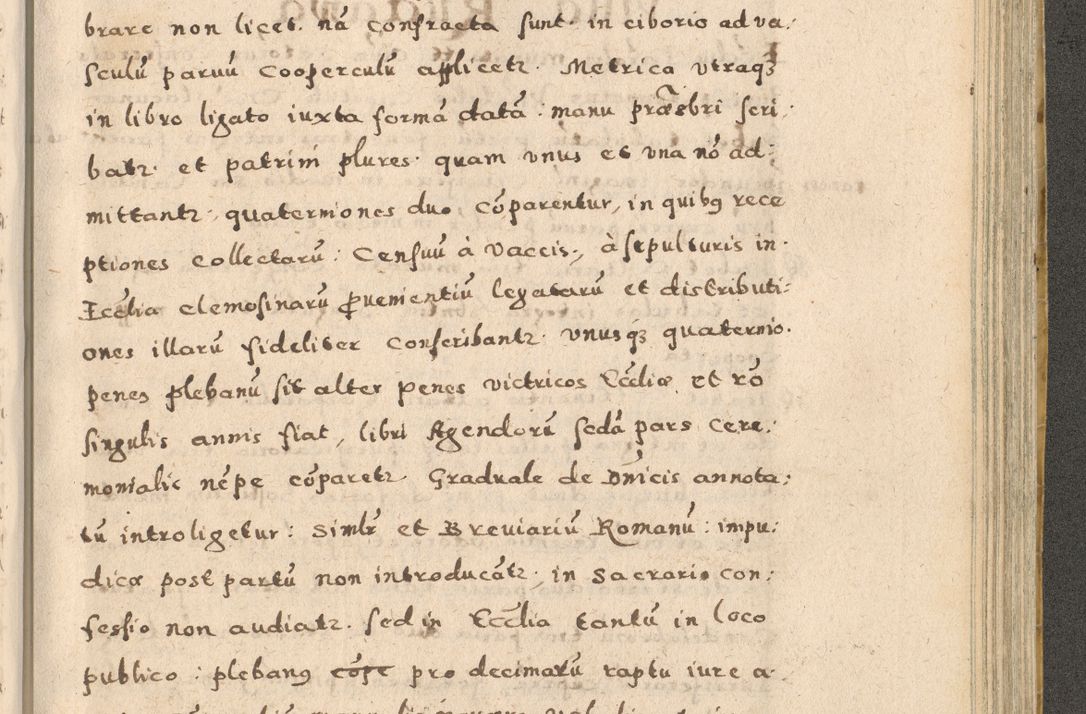 brare non licet. ná Confracta sunt. in ciborio ad va:
sculú paruú Cooperculú afflicetz. Metrica vtraqȝ
in libro ligato iuxta formá datá: manu præsbri scri:
batz. et patrini plures. quam vnus et vna nó ad:
mittantz. quaterniones duo Cóparentur, in quibꝯ rece
ptiones Collectarú: Censuú à vaccis, à sepulturis in
Eccĺia elemosinarú ꝓuenientiú legatarú et distributi:
ones illarú fideliter Conscribantz. vnusqȝ quaternio.
penes plebanú sit alter penes victricos Eccĺiæ et ró
singulis annis fiat, libri Agendorú sedá pars Cere:
monialis népe cóparetz. Graduale de Dnícis annota:
tú introligetur: Simlr et Breviariú Romanú: impu:
dicæ post partú non introducátz. in Sacrario Con:
fessio non audiatz. sed in Eccĺia tantú in loco
publico: plebanꝯ pro decimarú raptu iure a